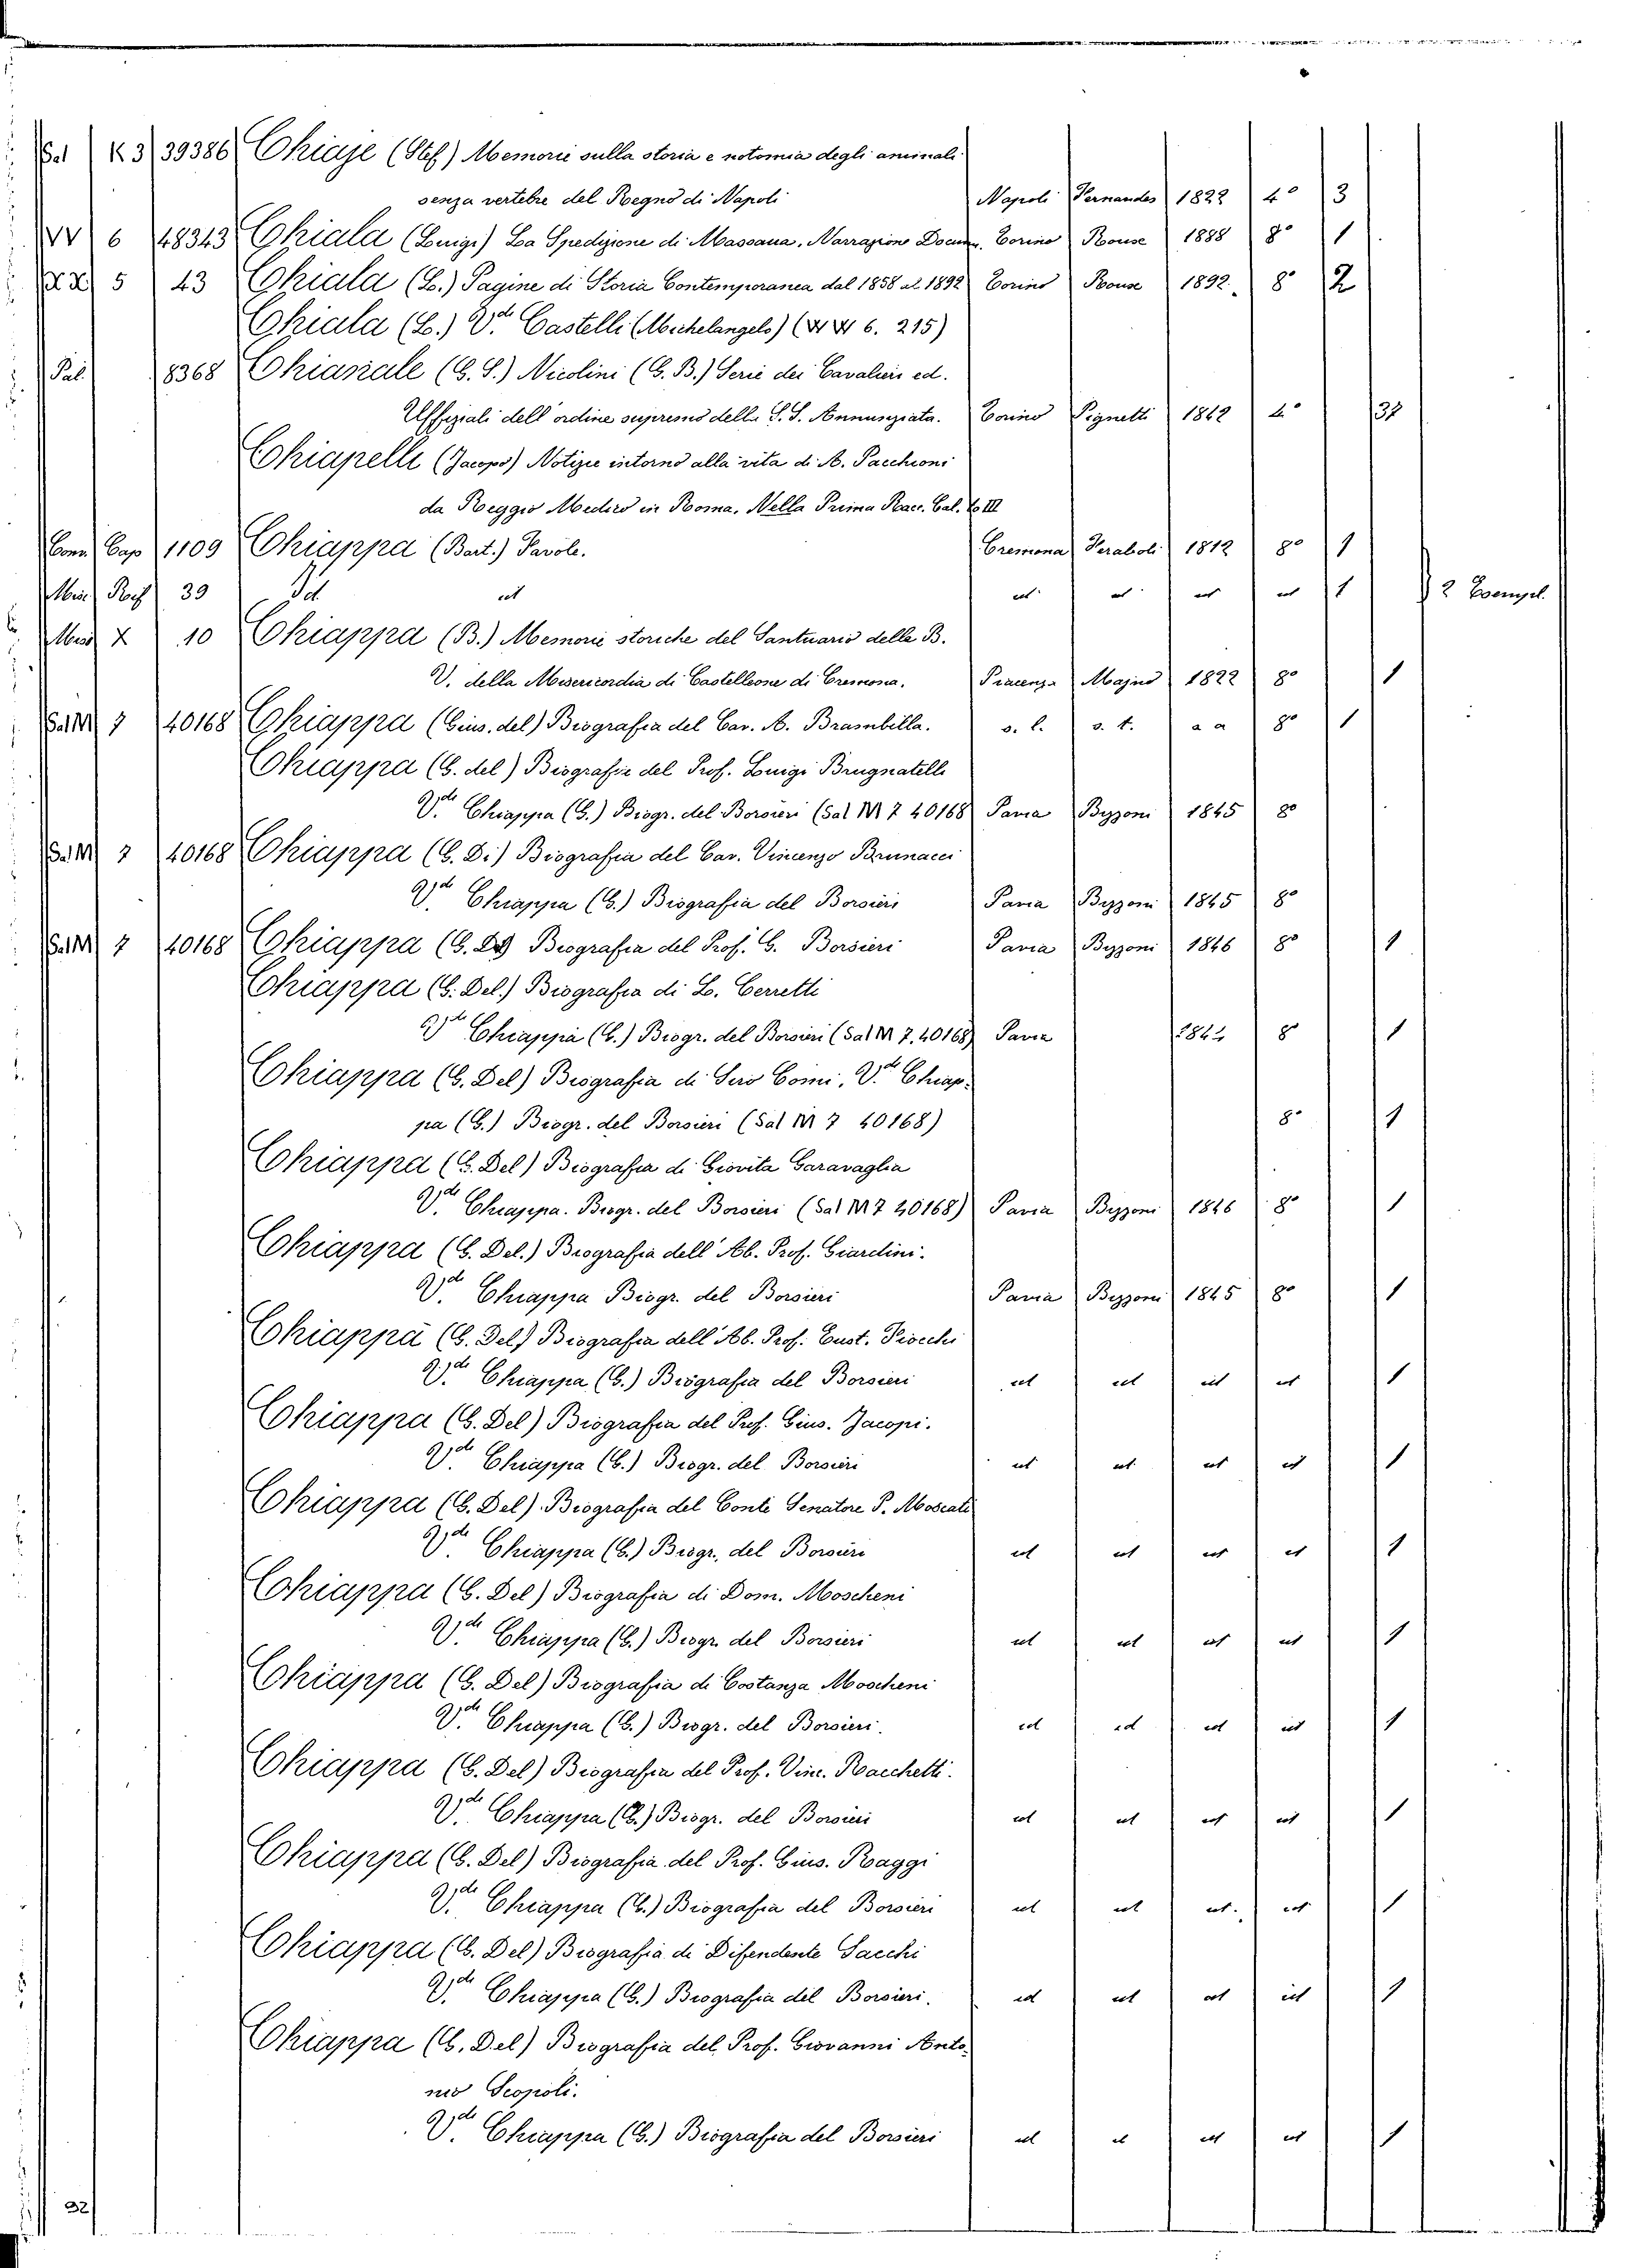 Sal K 3 39386 Chiaje (Stef.) Memorie sulla storia e notomia degli animali
senza vertebre del Regno di Napoli Napoli Fernandes 1822 4° 3
VV 6 48343 Chiala (Luigi) La Spedizione di Massaua. Narrazione Docum. Torino Roux 1888 8° 1
5 43 Chiala (L.) Pagine di Storia Contemporanea dal 1858 al 1892 Torino Roux 1892 8° 2
Chiala (L.) V.de Castelli (Michelangelo) ( 6. 215)
Pal. 8368 Chianale (G. S.) Nicolini (G. B.) Serie dei Cavalieri ed.
Uffiziali dell'ordine supremo della S. S. Annunziata. Torino Pignetti 1842 4°
Chiapelli (Jacopo) Notizie intorno alla vita di A. Pacchioni
da Reggio Medico in Roma. Nella Prima Racc. Cal. to III
Cap 1109 Chiappa (Bart.) Favole. Cremona Feraboli 1812 8° 1
39 Id. id id id id id 1 2 Esempl.
X 10 Chiappa (B.) Memorie storiche del Santuario della B.
V. della Misericordia di Castelleone di Cremona. Piacenza Majno 1822 8° 1
Sal M 7 40168 Chiappa (Gius. del) Biografia del Cav. A. Brambilla. s. l. s. t. a a 8° 1
Chiappa (G. del) Biografia del Prof. Luigi Brugnatelli
V.de Chiappa (G.) Biogr. del Borsieri (Sal M 7 40168) Pavia Bizzoni 1845 8°
Sal M 7 40168 Chiappa (G. Di) Biografia del Cav. Vincenzo Brunacci
V.de Chiappa (G.) Biografia del Borsieri Pavia Bizzoni 1845 8°
Sal M 7 40168 Chiappa (G. Di) Biografia del Prof. G. Borsieri Pavia Bizzoni 1846 8° 1
Chiappa (G. Del.) Biografia di L. Cerretti
V.de Chiappa (G.) Biogr. del Borsieri (Sal M 7. 40168) Pavia 8° 1
Chiappa (G. Del) Biografia di Siro Comi. V.de Chiap-
pa (G.) Biogr. del Borsieri (Sal M 7 40168) 8° 1
Chiappa (G. Del) Biografia di Giovita Garavaglia
V.de Chiappa. Biogr. del Borsieri (Sal M 7 40168) Pavia Bizzoni 1846 8° 1
Chiappa (G. Del.) Biografia dell'Ab. Prof. Giardini.
V.de Chiappa Biogr. del Borsieri Pavia Bizzoni 1845 8° 1
Chiappa (G. Del) Biografia dell'Ab. Prof. Eust. Fiocchi
V.de Chiappa (G.) Biografia del Borsieri id id id id 1
Chiappa (G. Del) Biografia del Prof. Gius. Jacopi.
V.de Chiappa (G.) Biogr. del Borsieri id id id id 1
Chiappa (G. Del) Biografia del Conte Senatore P. Moscati
V.de Chiappa (G.) Biogr. del Borsieri id id id id 1
Chiappa (G. Del) Biografia di Dom. Moscheni
V.de Chiappa (G.) Biogr. del Borsieri id id id id 1
Chiappa (G. Del) Biografia di Costanza Moscheni
V.de Chiappa (G.) Biogr. del Borsieri. id id id id 1
Chiappa (G. Del) Biografia del Prof. Vinc. Racchetti.
V.de Chiappa (G.) Biogr. del Borsieri id id id id 1
Chiappa (G. Del) Biografia del Prof. Gius. Raggi
V.de Chiappa (G.) Biografia del Borsieri id id id. id 1
Chiappa (G. Del) Biografia di Difendente Sacchi
V.de Chiappa (G.) Biografia del Borsieri. id id id id 1
Chiappa (G. Del) Biografia del Prof. Giovanni Anto-
nio Scopoli.
V.de Chiappa (G.) Biografia del Borsieri id id id id 1
32